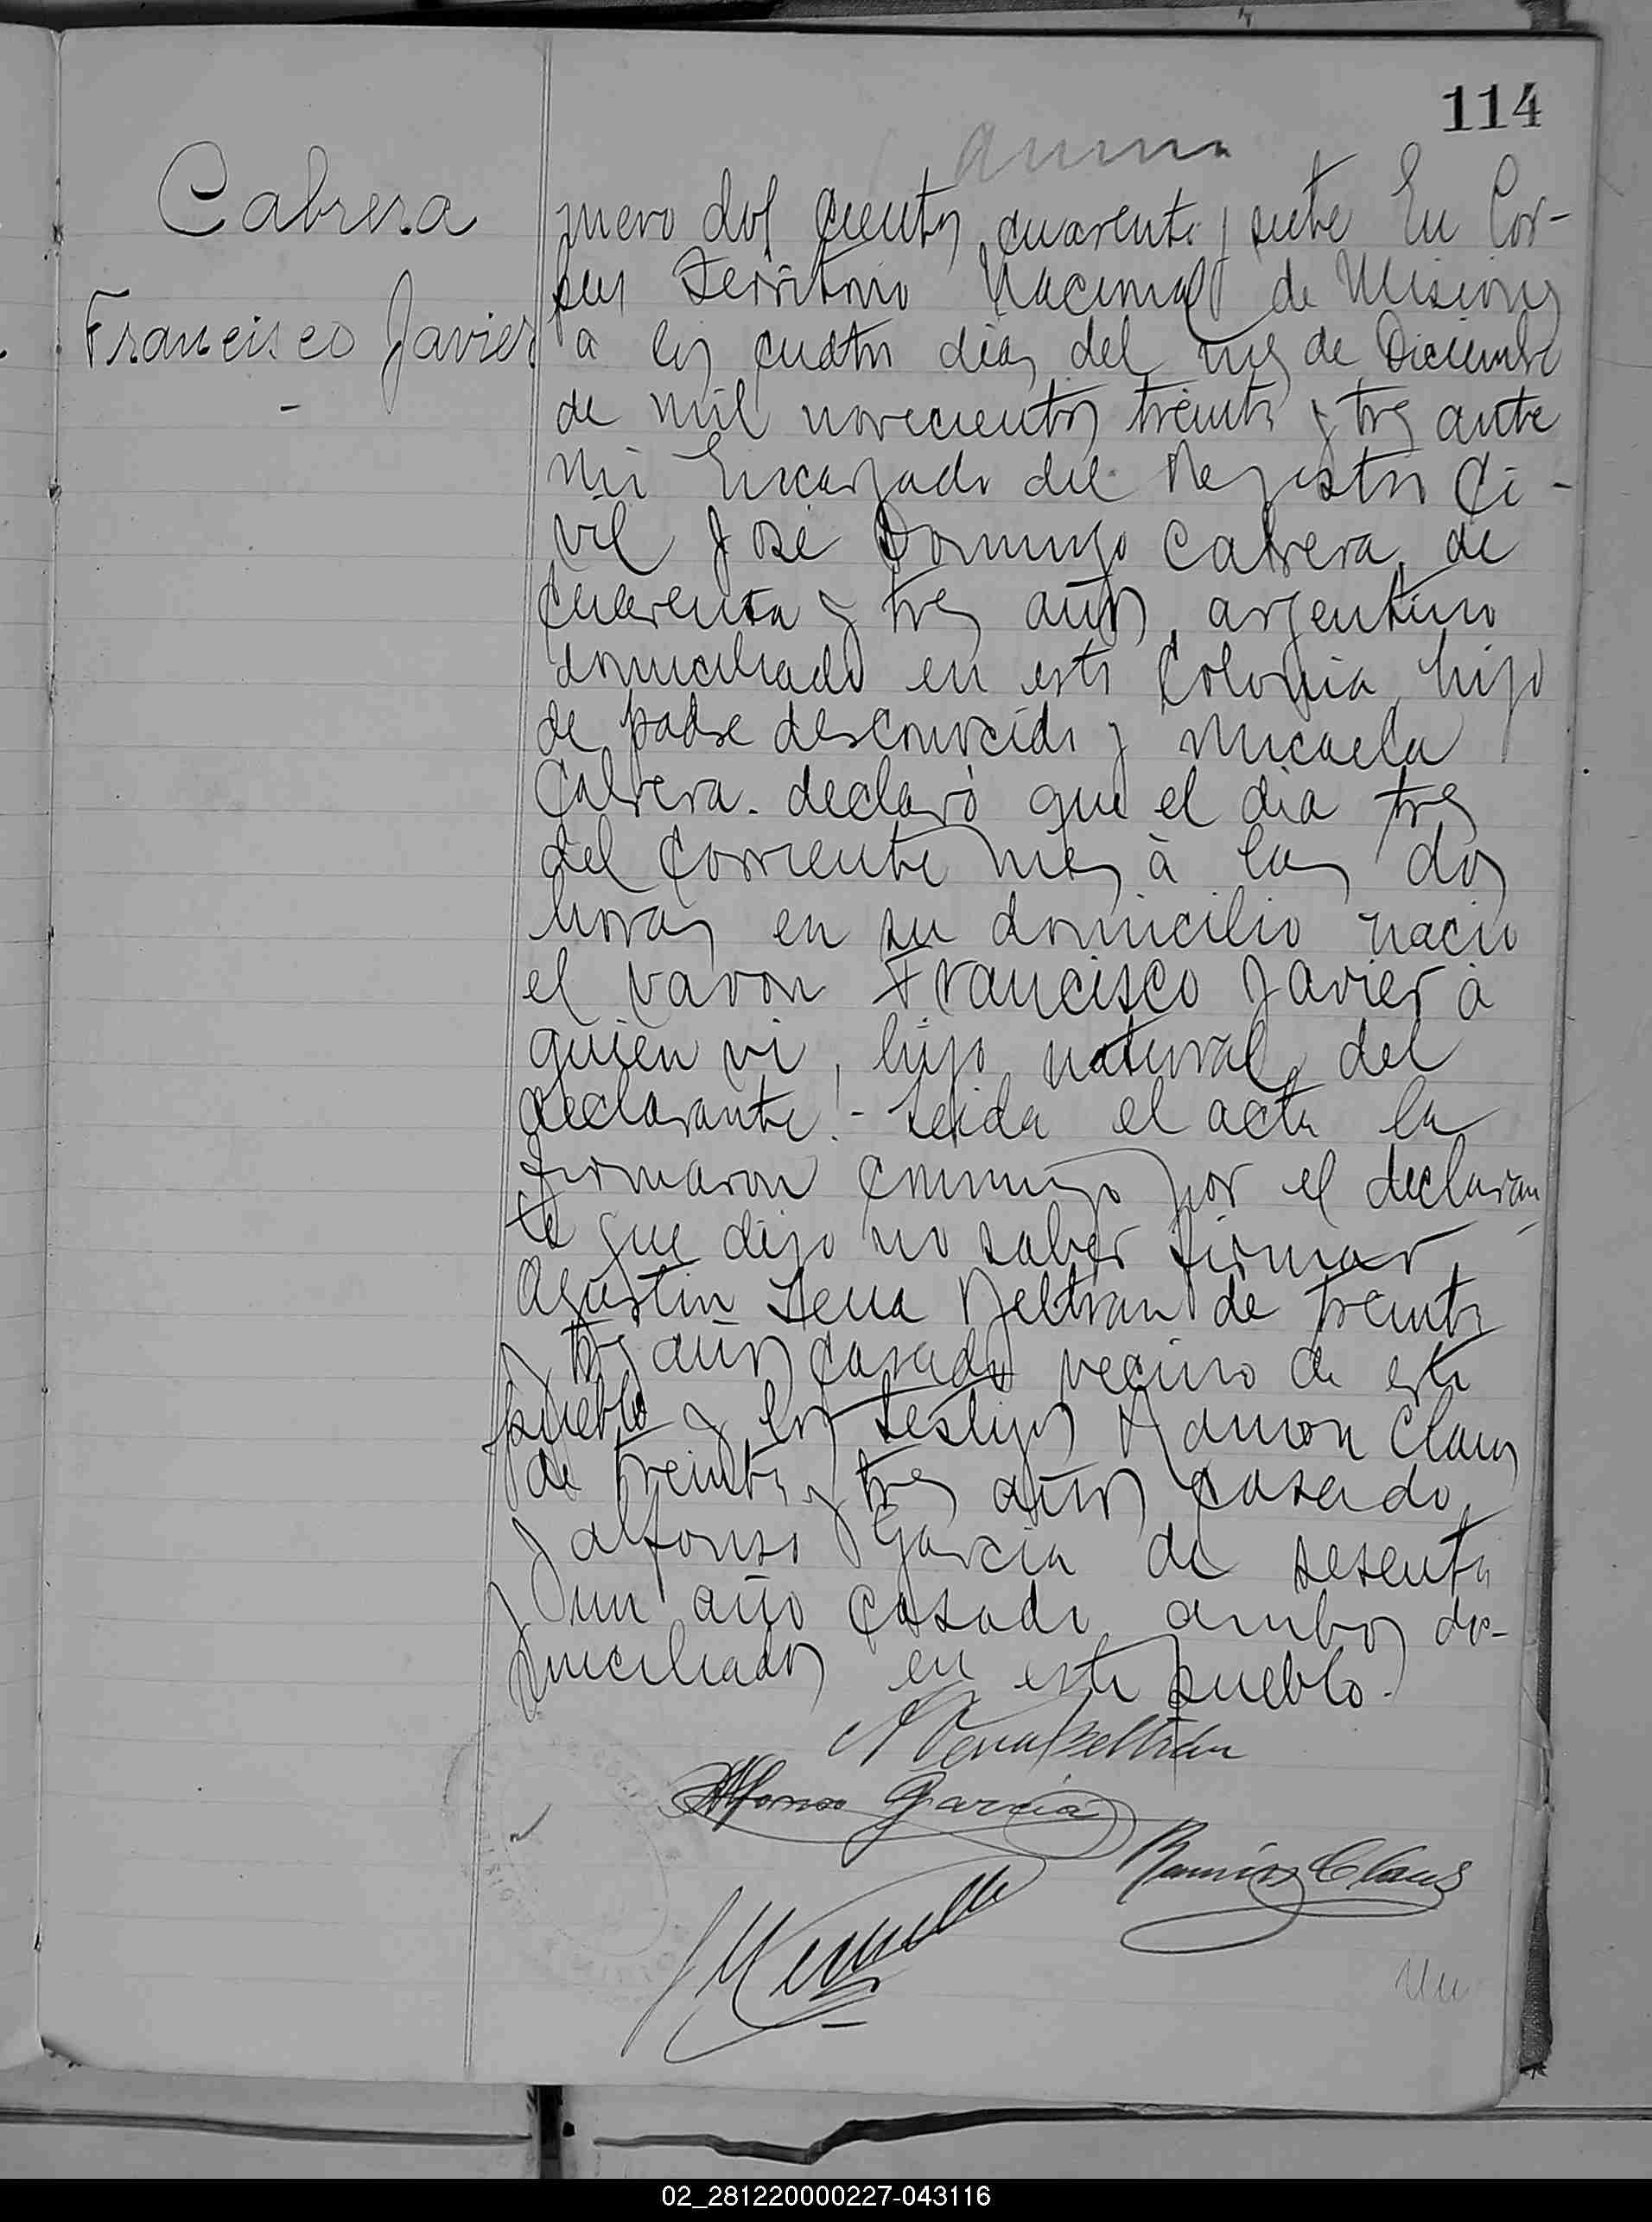 114
Cabrera
Francisco Javier
mero dos cientos cuarenta y siete En Cor-
pus Territorio Nacional de Misiones
a los cuatro dias del mes de Diciembre
de mil novecientos treinta y tres ante
mi Encargado del Registro Ci-
vil José Domingo Cabrera, de
cuarenta y tres años, argentino
domiciliado en esta Colonia, hijo
de padre desconocido y Micaela
Cabrera. declaró que el dia tres
del corriente mes à las dos
horas en su domicilio nacio
el varon Francisco Javier à
quien vi, hijo natural del
declarante!- Leida el acta la
firmaron conmigo por el declaran
te que dijo no saber firmar,
Agustin Beltran de treinta
y tres años casado vecino de este
pueblo y los testigos Ramon Claus
de treinta y tres años casado,
y Alfonso Garcia de sesenta
y un año casado, ambos do-
miciliados en este pueblo.
Beltrán
Alfonso Garcia
Ramón Claus
02_281220000227-043116